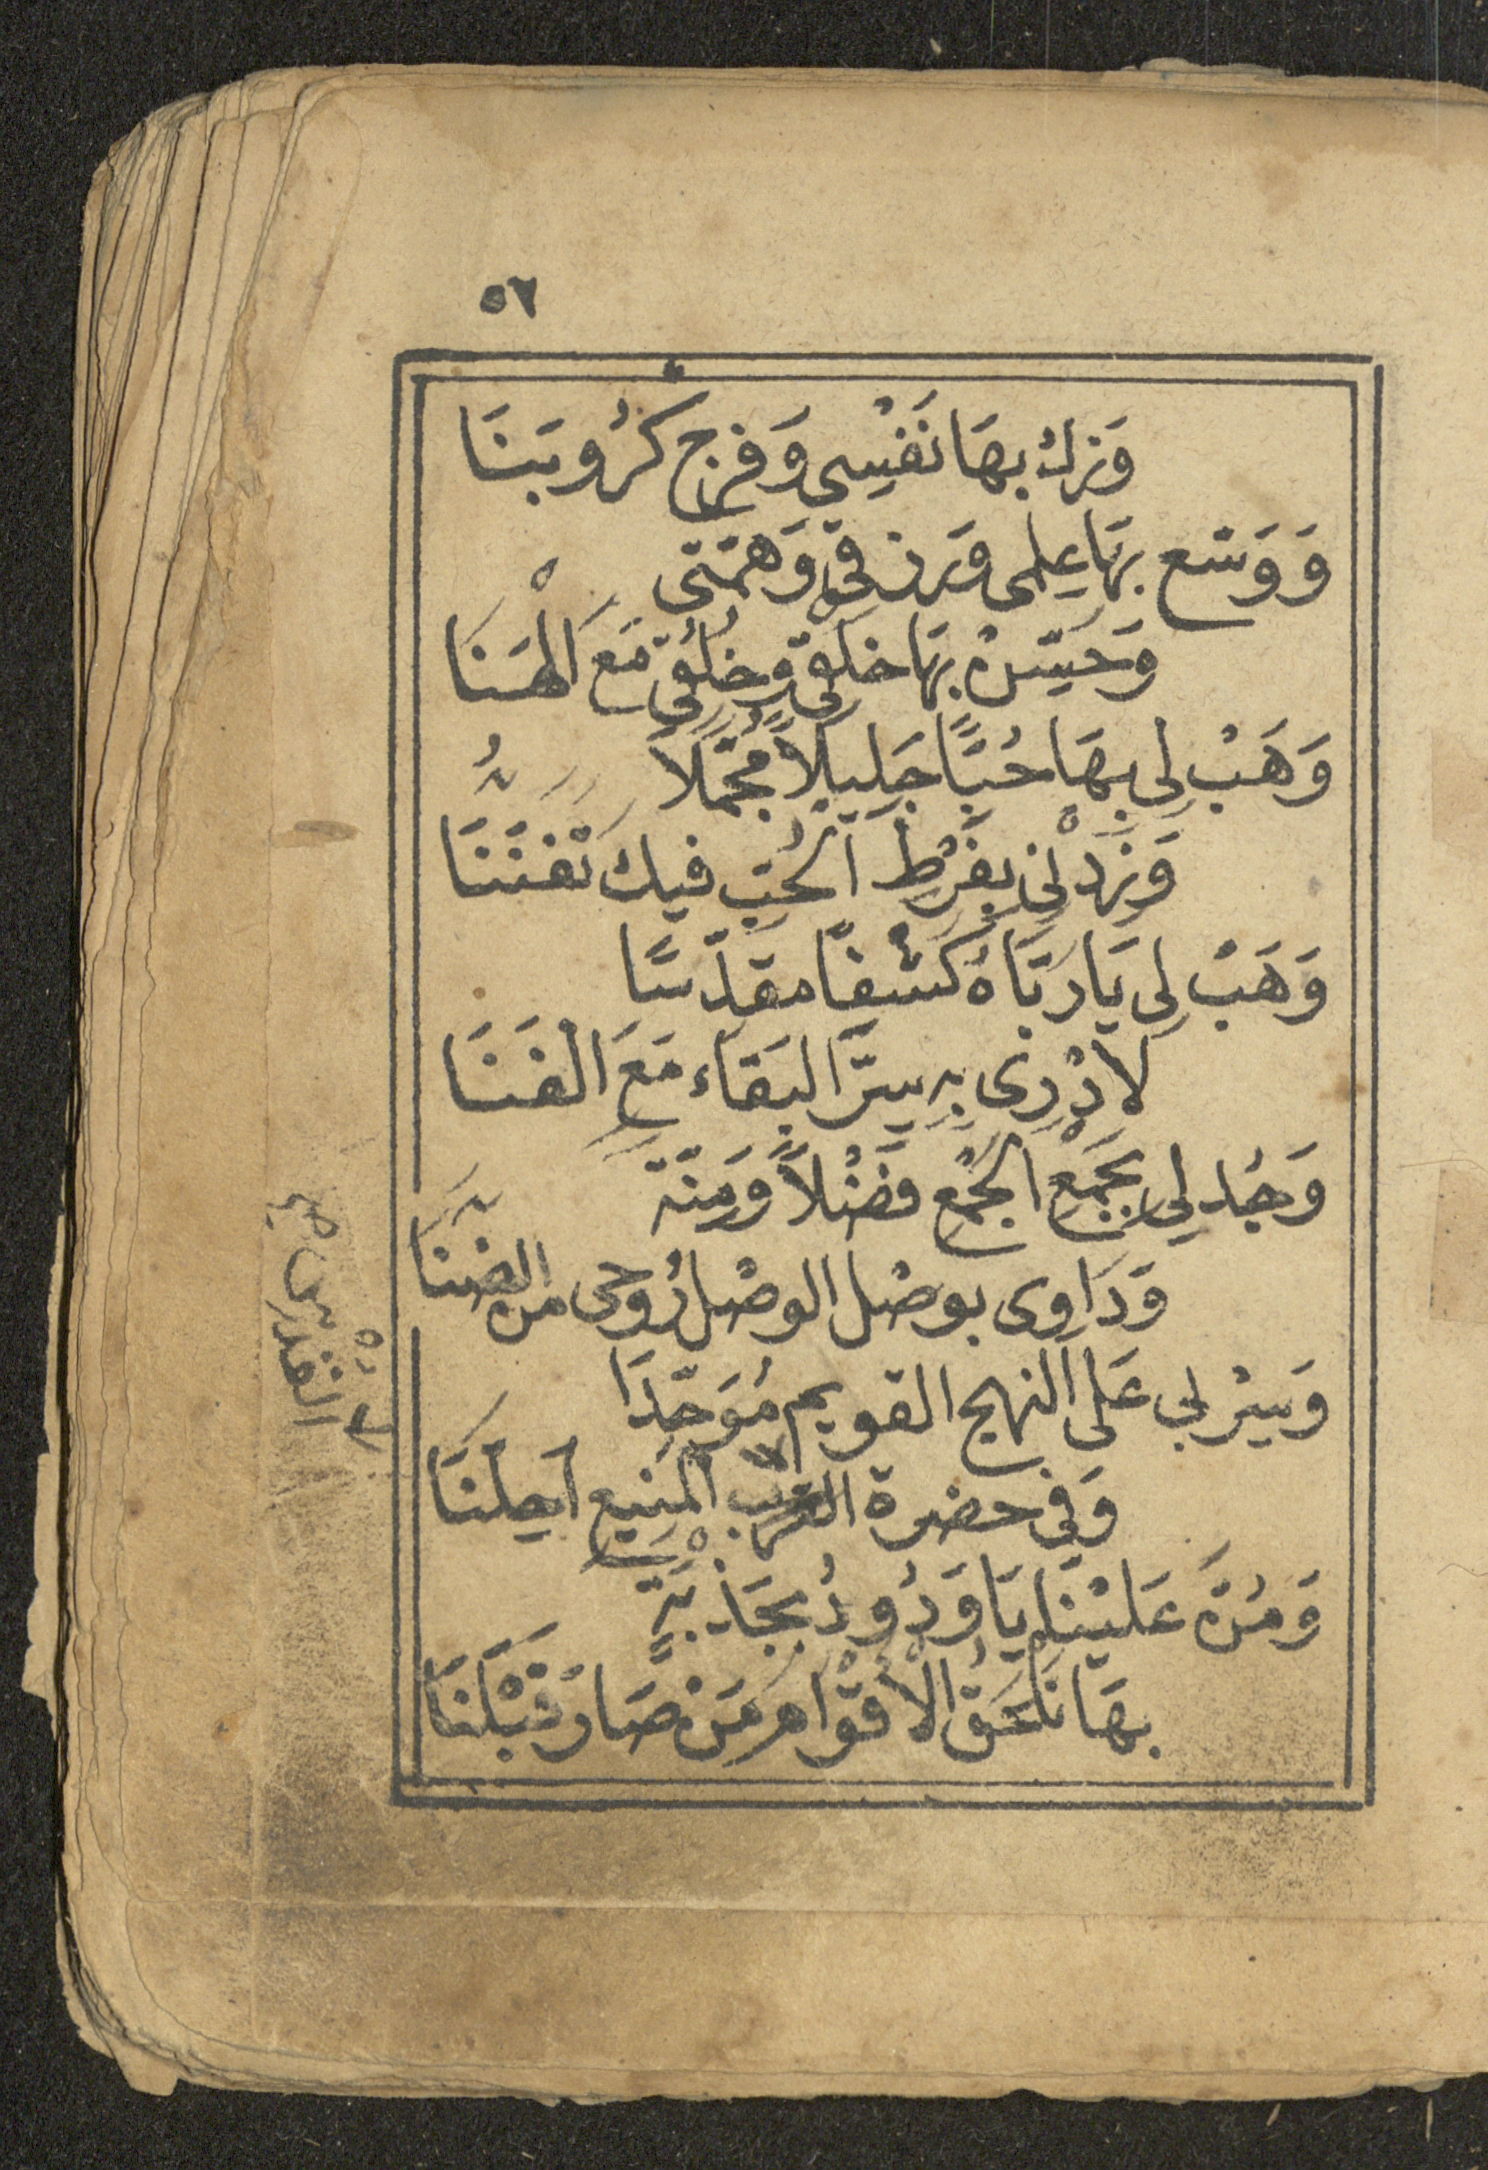 ٥٦
وَزَك بِهَا نَفْسِي وَفرج كُرُوبَنَا
وَوَسّع بِهَا عِلمِى وَرزقِي وَهِمّتى
وَحَسِّنْ بِهَا خلقِي وَخُلُقِي مَعَ الْهَنَا
وَهَبْ لِي بِهَا حُبًّا جَلِيلًا مُجَمّلًا
وَزِدْنِي بِفَرْطِ اَلحُبِّ فيك تَفَنُّنَا
وَهَبْ لِى يَا رَبَّاهُ كَشْفًا مقدّسًا
لِاَدْرِى بِهِ سِرَّ البَقَاء مَعَ الْفَنَا
وَجُد لِي بِجَمْعِ الْجَمْعِ فَضْلًا وَمِنّة
وَدَاوِى بوصْل الوصْل رُوحى من الضَّنَا
وَسِرْ بي عَلَى النهج القويم مُوَحِّدًا
وَفِي حضرة القرب المَنِيع اَحِلَّنَا
وَمُنَّ عَلَيْنَا يَا وَدُودُ بِجَذْبَةٍ
بِهَا نَلْحَقُ الْاَقْوَام مَنْ صَارَ قَبْلَنَا
القدس صح